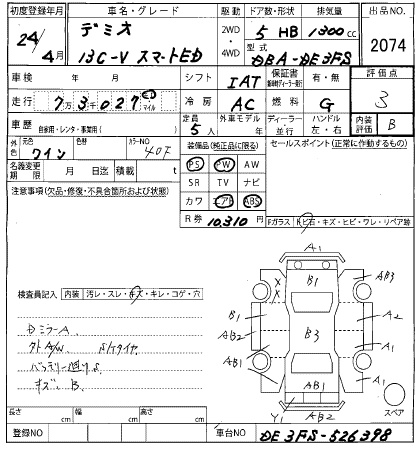 初度登録年月 車名・グレード 駆動 ドア数・形状 排気量 出品NO.
24/4月 デミオ 13C-V スマートED 2WD・4WD 5 HB 1300cc 2074
型式 DBA-DE3FS
車検 年 月 シフト IAT 保証書 有・無 評価点 3
走行 7万3千027 km マイル 冷房 AC 燃料 G
車歴 自家用・レンタ・事業用( ) 定員 5人 外車モデル 年 ディーラー・並行 ハンドル 左・右 内装評価 B
外色 元色 ワイン 色替 カラーNO 40F 装備品(純正品に限る) セールスポイント(正常に作動するもの)
名義変更期限 月 日迄 積載 t PS PW AW
注意事項(欠品・修復・不具合箇所および状態) SR TV ナビ
カワ エアB ABS
R券 10,310円 Fガラス トビ石・キズ・ヒビ・ワレ・リペア跡
A1
X X B1 AB3
検査員記入 内装 汚レ・スレ・キズ・キレ・コゲ・穴
B1 B3 A2
DミラーA AB2
タイヤ A1
AB1 A1
キズ、B
AB1 A1
Y1 AB2 スペア
長さ cm 幅 cm 高さ cm
登録NO 車台NO DE3FS-526398